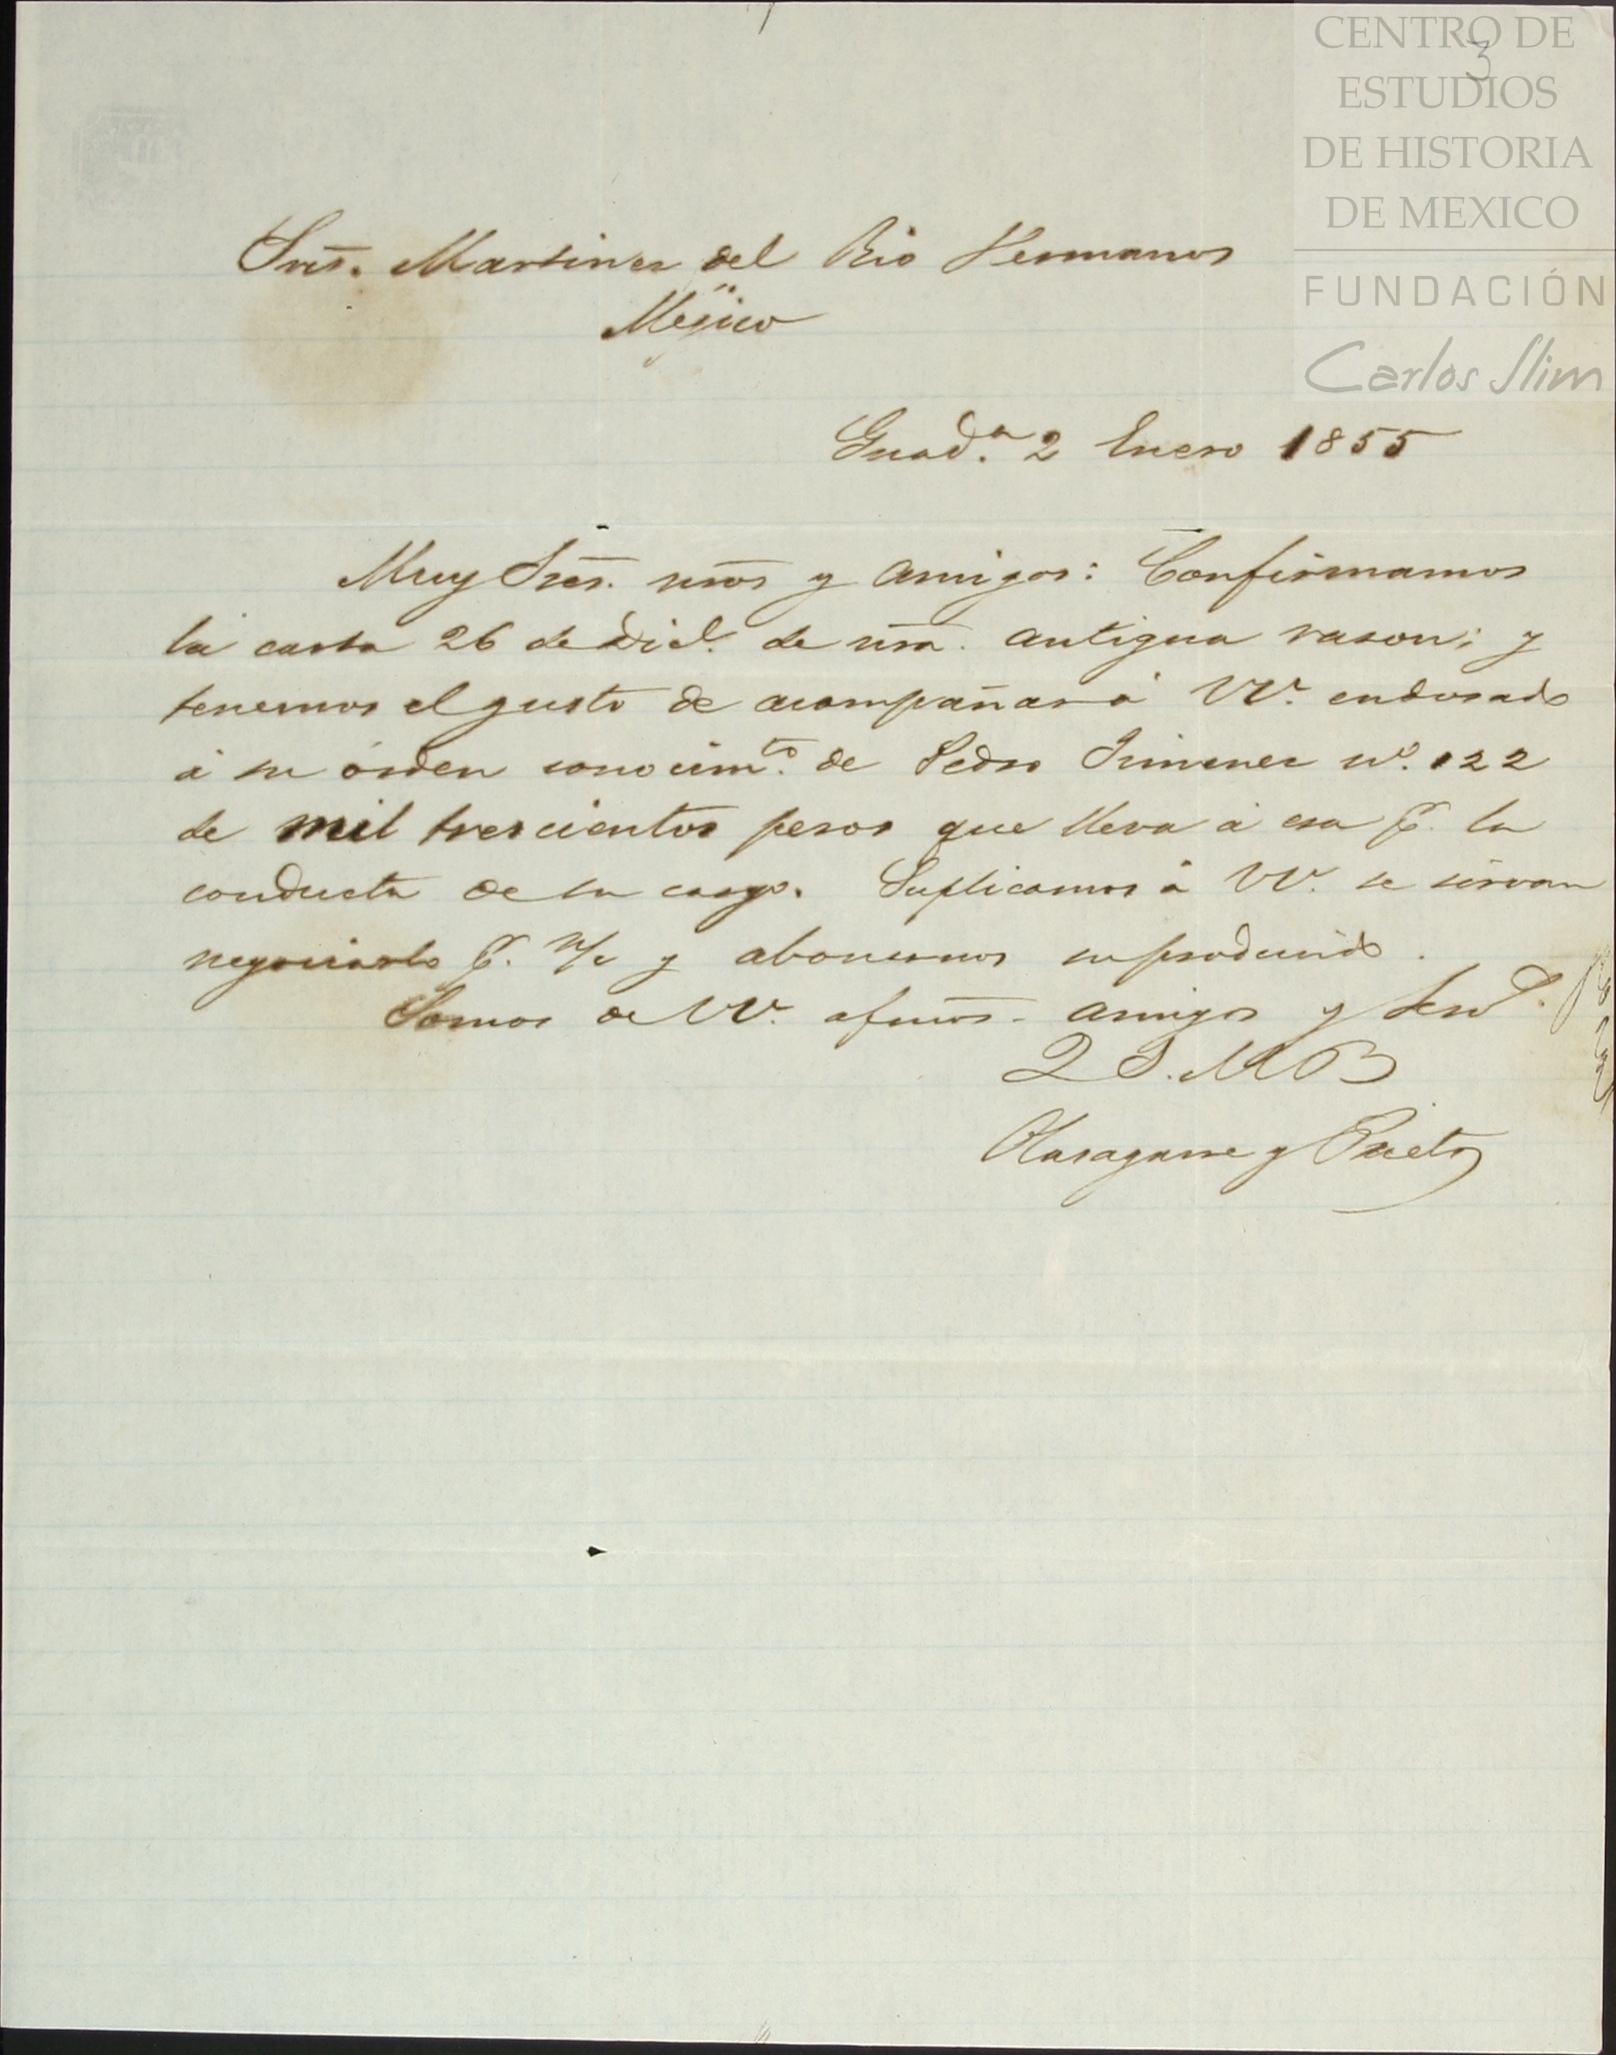 CENTRO DE
ESTUDIOS
DE HISTORIA
DE MEXICO
FUNDACIÓN
Carlos Slim
3
Sres. Martinez del Rio Hermanos
Mejico
Guad.a 2 Enero 1855
Muy Sres. nros y amigos: Confirmamos
la carta 26 de Dic.e de nra. antigua rason; y
tenemos el gusto de acompañar á VV. endosado
á su órden conocim.to de Pedro Jimenez nº. 122
de mil trescientos pesos que lleva á esa p. la
conducta de su cargo. Suplicamos á VV. se sirvan
negociarlo p. n/c y abonarnos su producido.
Somos de VV. afmos. amigos y Serv.s
Q S. M B
Olasagarre y Prieto